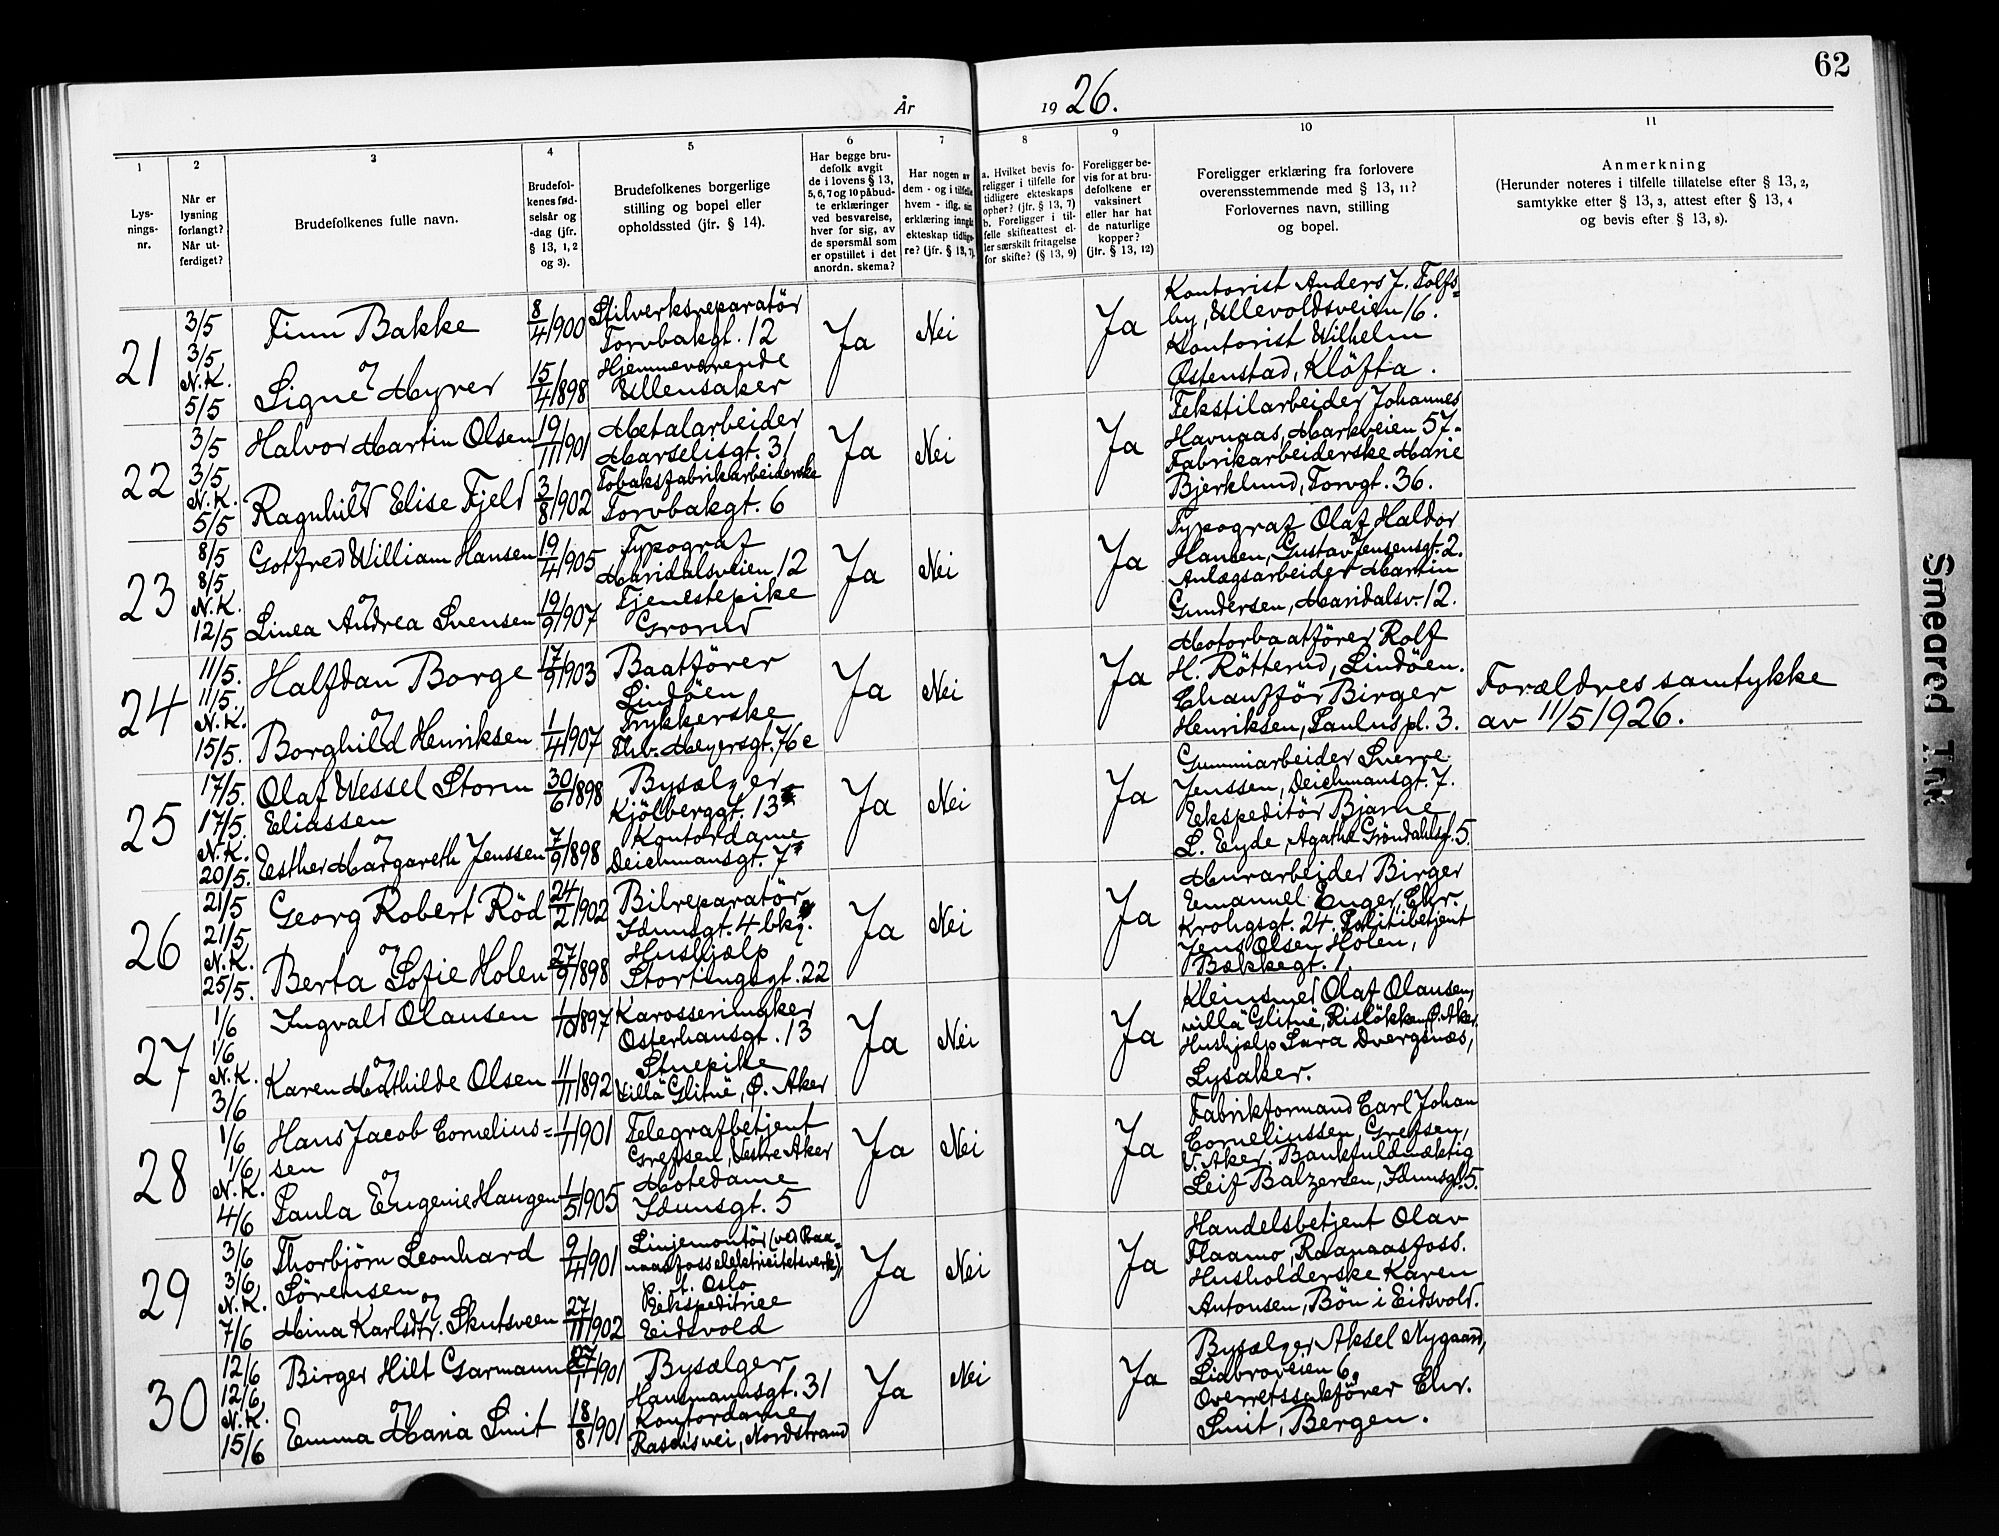 62
År 1926.
1
2
3
4
5
6
7
8
9
10
11
Lys-
nings-
nr.
Når er
lysning
forlangt?
Når ut-
ferdiget?
Brudefolkenes fulle navn.
Brudefol-
kenes fød-
selsår og
-dag (jfr.
§ 13, 1, 2
og 3).
Brudefolkenes borgerlige
stilling og bopel eller
opholdssted (jfr. § 14).
Har begge bru-
defolk avgit
de i lovens § 13,
5, 6, 7 og 10 påbud-
te erklæringer
ved besvarelse,
hver for sig, av
de spørsmål som
er opstillet i det
anordn. skema?
Har nogen av
dem - og i tilfelle
hvem - iflg. sin
erklæring inngått
ekteskap tidlige-
re? (jfr. § 13, 7)
a. Hvilket bevis fo-
religger i tilfelle for
tidligere ekteskaps
opher? (jfr. § 13, 7)
b. Foreligger i til-
felle skifteattest el-
ler særskilt fritagelse
for skifte? (§ 13, 9)
Foreligger be-
vis for at bru-
defolkene er
vaksinert
eller har hat
de naturlige
kopper?
(jfr. § 13, 12)
Foreligger erklæring fra forlovere
overensstemmende med § 13, 11?
Forlovernes navn, stilling
og bopel.
Anmerkning
(Herunder noteres i tilfelle tillatelse efter § 13, 2,
samtykke efter § 13, 3, attest efter § 13, 4
og bevis efter § 13, 8).
21
3/5
3/5
N.K.
5/5
Finn Bakke
og
Signe Myrer
8/4 1900
15/4 1898
Stilverksreparatör
Torvbakgt. 12
Hjemmeværende
Ullensaker
Ja
Nei
Ja
Kontorist Anders J. Tolfs=
by, Ullevoldsveien 16.
Kontorist Wilhelm
Østenstad, Kløfta.
22
3/5
3/5
N.K.
5/5
Halvor Martin Olsen
og
Ragnhild Elise Fjeld
19/11 1901
3/8 1902
Metalarbeider
Marselisgt. 31
Tobaksfabrikarbeiderske
Torvbakgt. 6
Ja
Nei
Ja
Tekstilarbeider Johannes
Havnaas, Markveien 57.
Fabrikarbeiderske Marie
Bjerklund, Torvgt. 36.
23
8/5
8/5
N.K.
12/5
Gotfred William Hansen
og
Linea Andrea Svensen
19/4 1905
19/9 1907
Typograf
Maridalsveien 12
Tjenestepike
Grorud
Ja
Nei
Ja
Typograf Olaf Haldor
Hansen, Gustav Jensensgt. 2.
Anlægsarbeider Martin
Gundersen, Maridalsv. 12.
24
11/5.
11/5.
N.K.
15/5.
Halfdan Borge
og
Borghild Henriksen
17/9 1903
1/4 1907
Baatförer
Lindöen
Trykkerske
Thv. Meyersgt. 76 c
Ja
Nei
Ja
Motorbaatförer Rolf
H. Rötterud, Lindöen.
Chaufför Birger
Henriksen, Paulus pl. 3.
Forældres samtykke
av 11/5 1926.
25
17/5.
17/5.
N.K.
20/5.
Olaf Wessel Storm
Eliassen
og
Esther Margareth Jenssen
30/6 1898
7/9 1898
Bysælger
Kjölberggt. 13
Kontordame
Deichmansgt. 7
Ja
Nei
Ja
Gummiarbeider Sverre
Jenssen, Deichmansgt. 7.
Ekspeditör Bjarne
L. Eyde, Agathe Gröndahlsgt. 5.
26
21/5
21/5
N.K.
25/5.
Georg Robert Röd
og
Berta Sofie Holen
24/2 1902
27/9 1898
Bilreparatör
Idunsgt. 4 bkg.
Hushjælp
Stortingsgt. 22
Ja
Nei
Ja
Murarbeider Birger
Emanuel Enger, Chr.
Krohgsgt. 24. Politibetjent
Jens Olsen Holen,
Bakkegt. 1
27
1/6
1/6
N.K.
3/6
Ingvald Olausen
og
Karen Mathilde Olsen
1/10 1897
4/11 1892
Karosserimaker
Osterhausgt. 13
Stuepike
Villa Glitne, Ø. Aker
Ja
Nei
Ja
Kleinsmed Olaf Olausen,
villa "Glitne", Risløkken, Ø. Aker.
Hushjælp Sara Dvergsnes,
Lysaker.
28
1/6
1/6
N.K.
4/6
Hans Jacob Cornelius=
sen
og
Paula Eugenie Haugen
1/5 1905
Telegrafbetjent
Grefsen, Vestre Aker
Motedame
Idunsgt. 5
Ja
Nei
Ja
Fabrikformand Carl Johan
Corneliussen, Grefsen,
V. Aker. Bankfuldmæktig
Leif Balzersen, Idunsgt. 5.
29
3/6
3/6
N.K.
7/6
Thorbjörn Leonhard
Sörensen
og
Mina Karlsdtr. Skutsveen
9/4 1901
27/11 1902
Linjemontör (ved Raa=
naasfoss elektricitetsverk),
f. t. Oslo
Ekspeditrice
Eidsvold
Ja
Nei
Ja
Handelsbetjent Olav
Flaamo, Raanaasfoss.
Husholderske Karen
Antonsen, Bön i Eidsvold.
30
12/6
12/6
N.K.
15/6
Birger Hilt Garmann
og
Emma Maria Smit
27/1 1901
18/8 1901
Bysælger
Hausmannsgt. 31
Kontordame
Raschs vei, Nordstrand
Ja
Nei
Ja
Bysælger Aksel Nygaard,
Liabroveien 6,
Overretssakförer Chr.
Smit, Bergen.
Smeared Ink